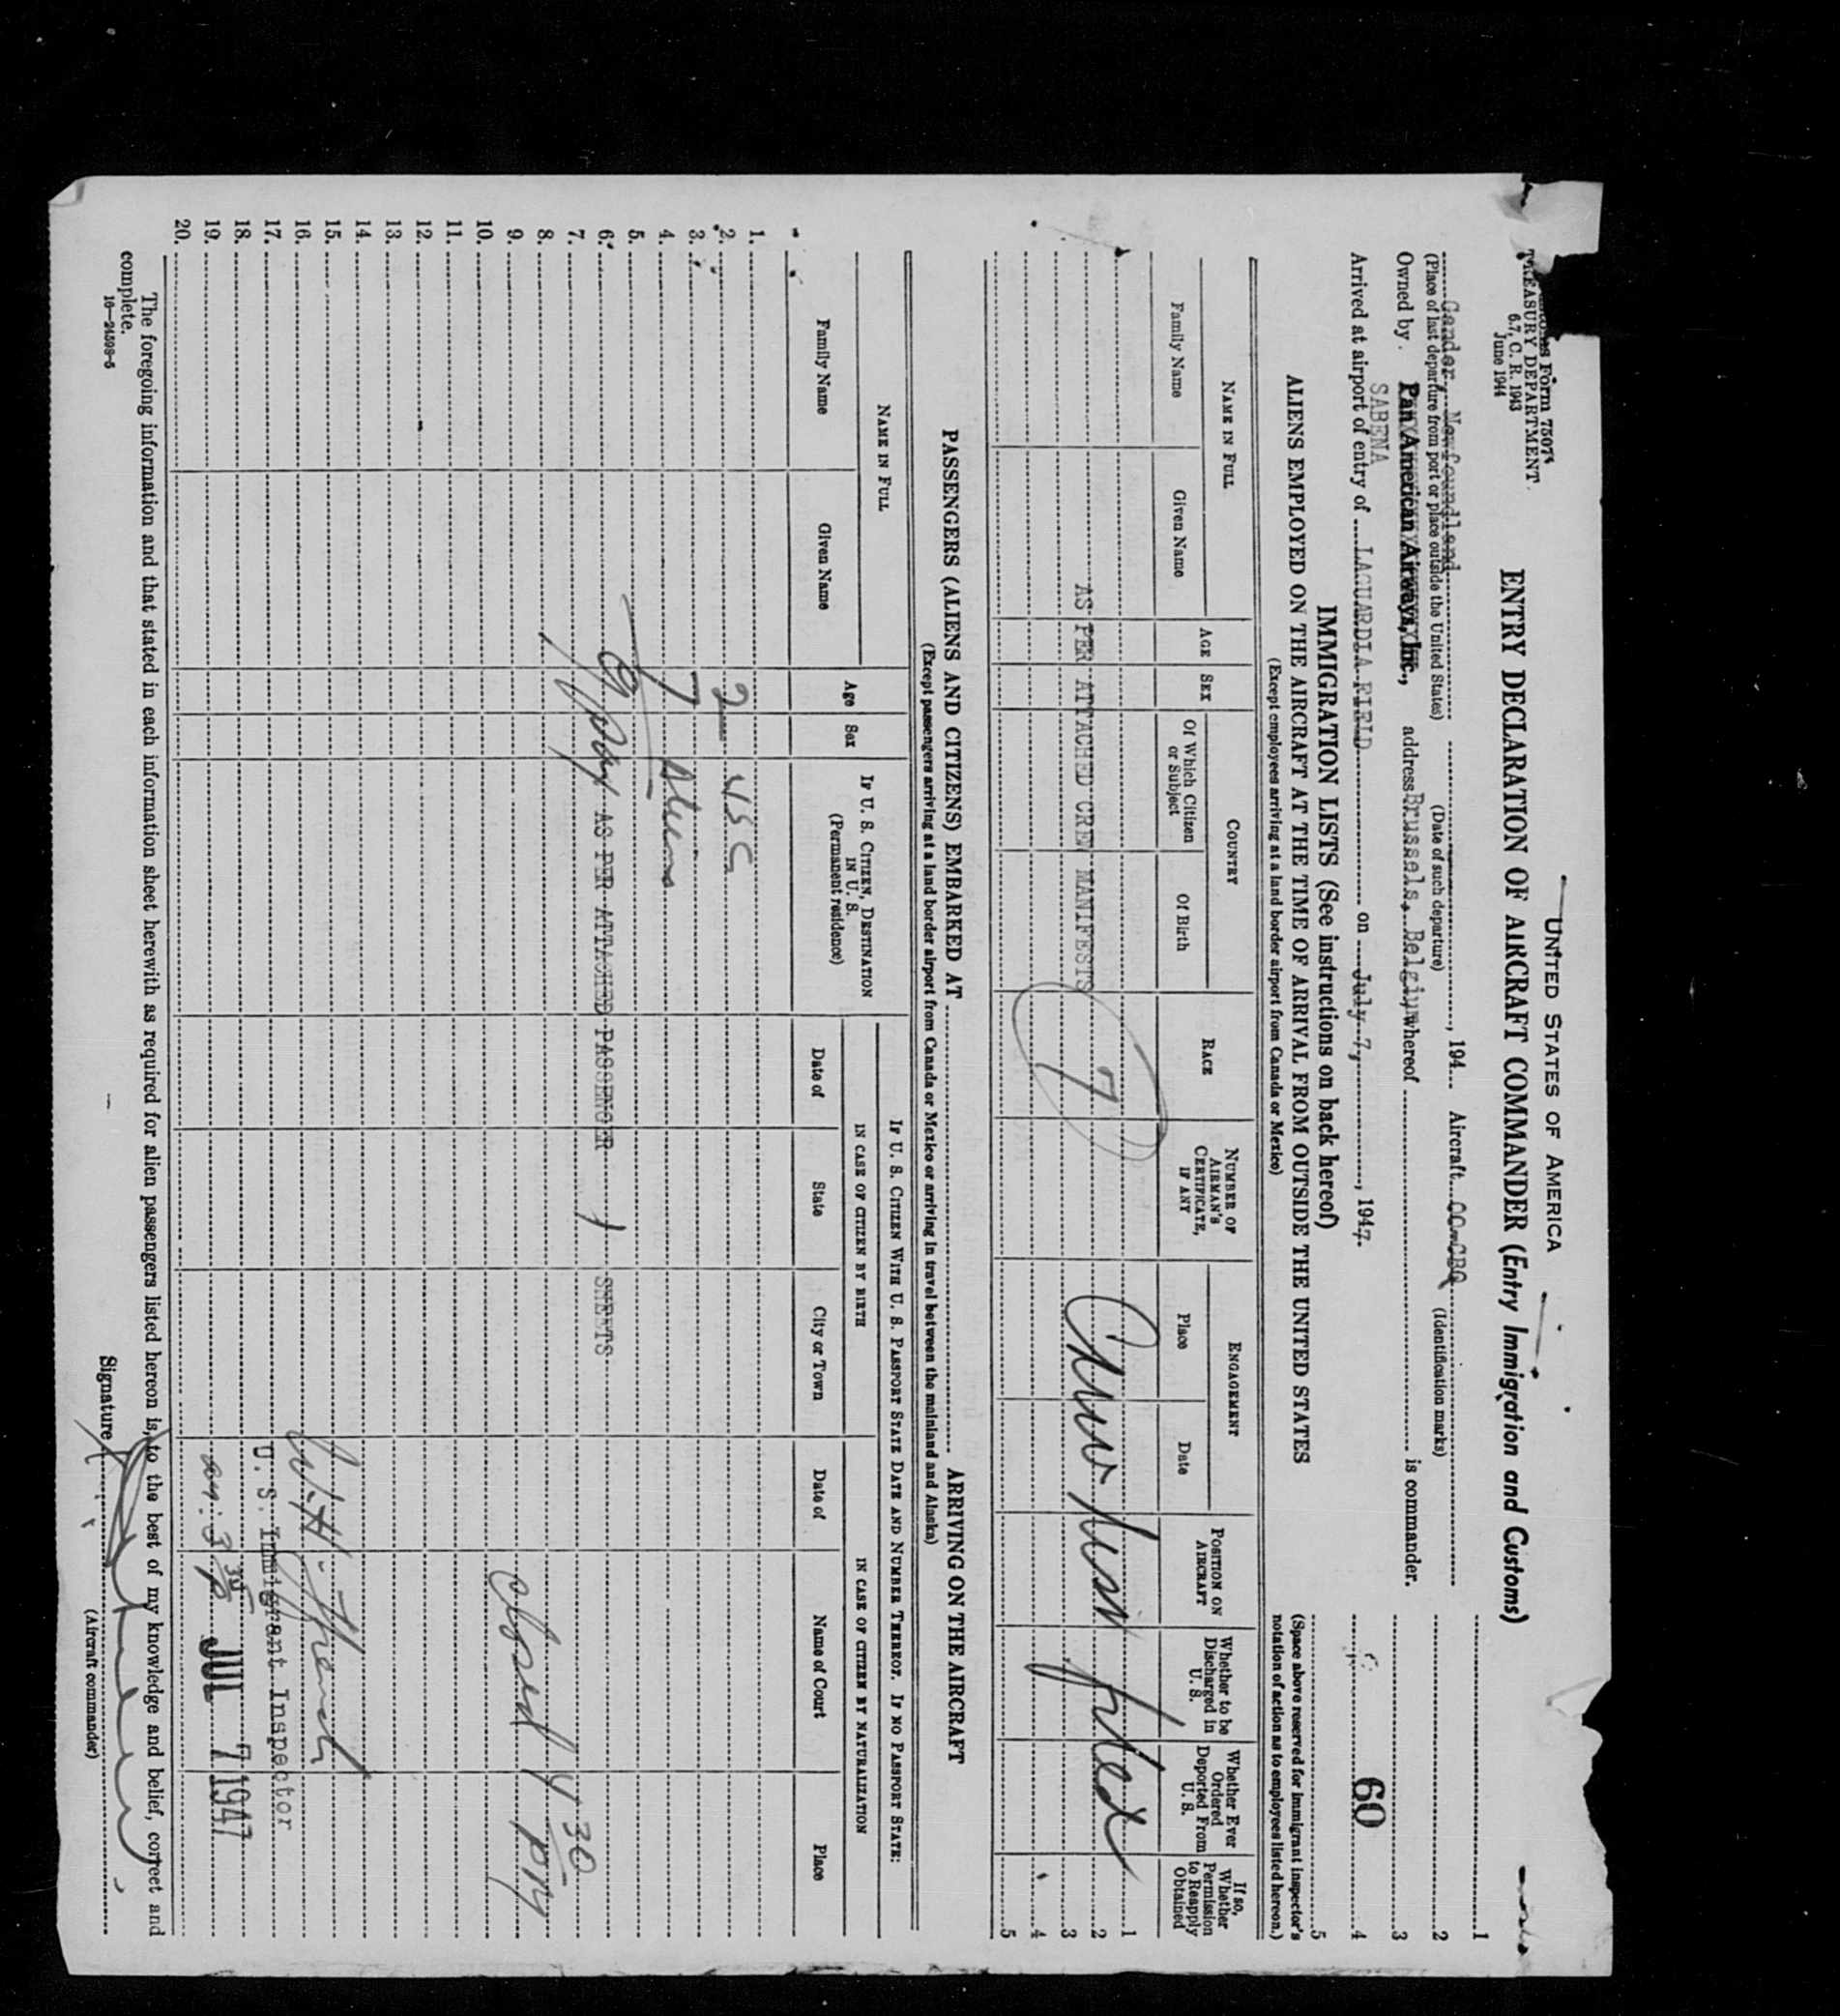 Customs Form 7507½
TREASURY DEPARTMENT
6.7, C. R. 1943
June 1944
UNITED STATES OF AMERICA
ENTRY DECLARATION OF AIRCRAFT COMMANDER (Entry Immigration and Customs)
Gander, Newfoundland , 194 Aircraft OO-CBG
(Place of last departure from port or place outside the United States) (Date of such departure) (Identification marks)
Owned by Pan American Airways, Inc., address Brussels, Belgium whereof is commander.
SABENA
Arrived at airport of entry of LAGUARDIA FIELD on July 7, , 1947.
1
2
3
4
5
60
(Space above reserved for immigrant inspector's notation of action as to employees listed hereon.)
IMMIGRATION LISTS (See instructions on back hereof)
ALIENS EMPLOYED ON THE AIRCRAFT AT THE TIME OF ARRIVAL FROM OUTSIDE THE UNITED STATES
(Except employees arriving at a land border airport from Canada or Mexico)
NAME IN FULL
Family Name
Given Name
AGE
SEX
COUNTRY
Of Which Citizen or Subject
Of Birth
RACE
NUMBER OF AIRMAN'S CERTIFICATE, IF ANY
ENGAGEMENT
Place
Date
POSITION ON AIRCRAFT
Whether to be Discharged in U. S.
Whether Ever Ordered Deported From U. S.
If so, Whether Permission to Reapply Obtained
1
2
3
4
5
AS PER ATTACHED CREW MANIFESTS
7
Crew list filed
PASSENGERS (ALIENS AND CITIZENS) EMBARKED AT ARRIVING ON THE AIRCRAFT
(Except passengers arriving at a land border airport from Canada or Mexico or arriving in travel between the mainland and Alaska)
NAME IN FULL
Family Name
Given Name
Age
Sex
IF U. S. CITIZEN, DESTINATION IN U. S.
(Permanent residence)
IF U. S. CITIZEN WITH U. S. PASSPORT STATE DATE AND NUMBER THEREOF. IF NO PASSPORT STATE:
IN CASE OF CITIZEN BY BIRTH
IN CASE OF CITIZEN BY NATURALIZATION
Date of
State
City or Town
Date of
Name of Court
Place
1.
2. 2 USC
3.
4. 7 Aliens
5.
6. 9 AS PER ATTACHED PASSENGER 1 SHEETS
7.
8.
9. closed 4 30 PM
10.
11.
12.
13.
14.
15.
16.
17. U. S. Immigrant Inspector
18.
19. arr: 3 35 p JUL 7 1947
20.
The foregoing information and that stated in each information sheet herewith as required for alien passengers listed hereon is, to the best of my knowledge and belief, correct and complete.
16—24598-5
Signature
(Aircraft commander)